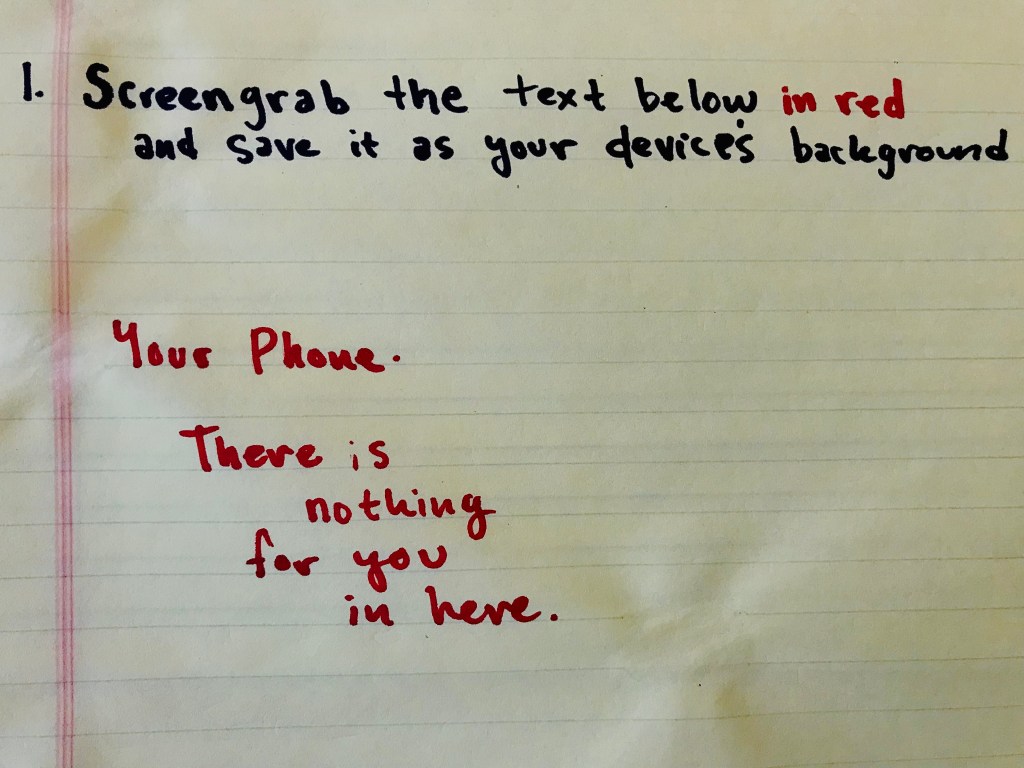 1. Screengrab the text below in red
and save it as your device's background
Your Phone.
There is
nothing
for you
in here.